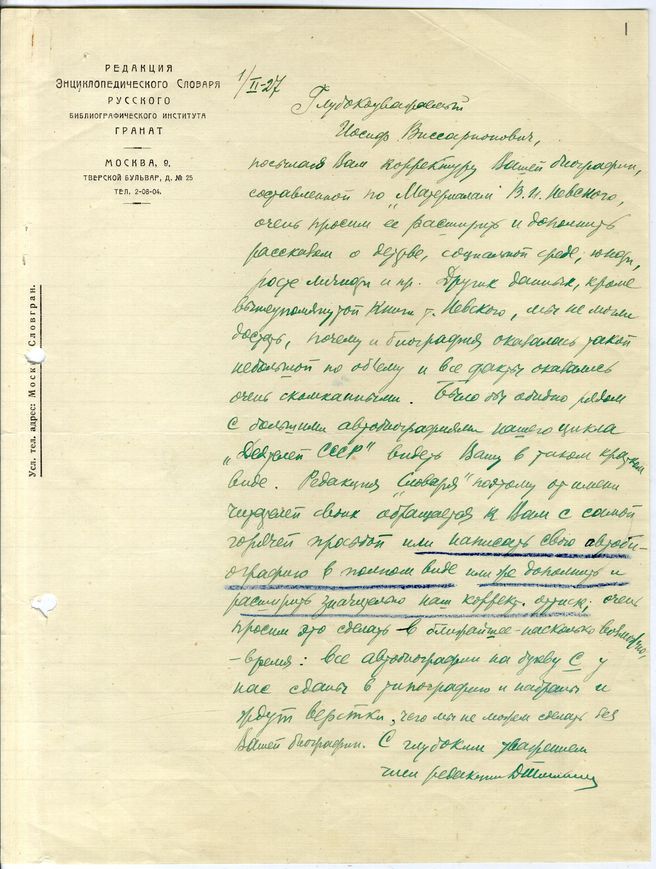 1
РЕДАКЦИЯ
Энциклопедического Словаря
РУССКОГО
БИБЛИОГРАФИЧЕСКОГО ИНСТИТУТА
ГРАНАТ
МОСКВА, 9,
ТВЕРСКОЙ БУЛЬВАР, Д. № 25
ТЕЛ. 2-08-04.
Усл. тел. адрес: Моск Словгран.
1/II-27
Глубокоуважаемый
Иосиф Виссарионович,
посылая Вам корректуру Вашей биографии,
составленной по „Материалам В. И. Невского,
очень просим ее расширить и дополнить
рассказом о детстве, социальной среде, юности,
росте личности и пр. Других данных, кроме
вышеупомянутой книги т. Невского, мы не могли
достать, почему и биография оказалась такой
небольшой по объему и все факты оказались
очень скомканными. Было бы обидно рядом
с большими автобиографиями нашего цикла
„Деятелей СССР" видеть Вашу в таком кратком
виде. Редакция „Словаря" поэтому от имени
читателей своих обращается к Вам с самой
горячей просьбой или написать свою автоби-
ографию в полном виде или же дополнить и
расширить значительно нам коррект. оттиск, очень
просим это сделать в ближайшее - насколько возможно,
- время: все автобиографии на букву С у
нас сданы в типографию и набраны и
ждут верстки, чего мы не можем сделать без
Вашей биографии. С глубоким уважением
член редакции